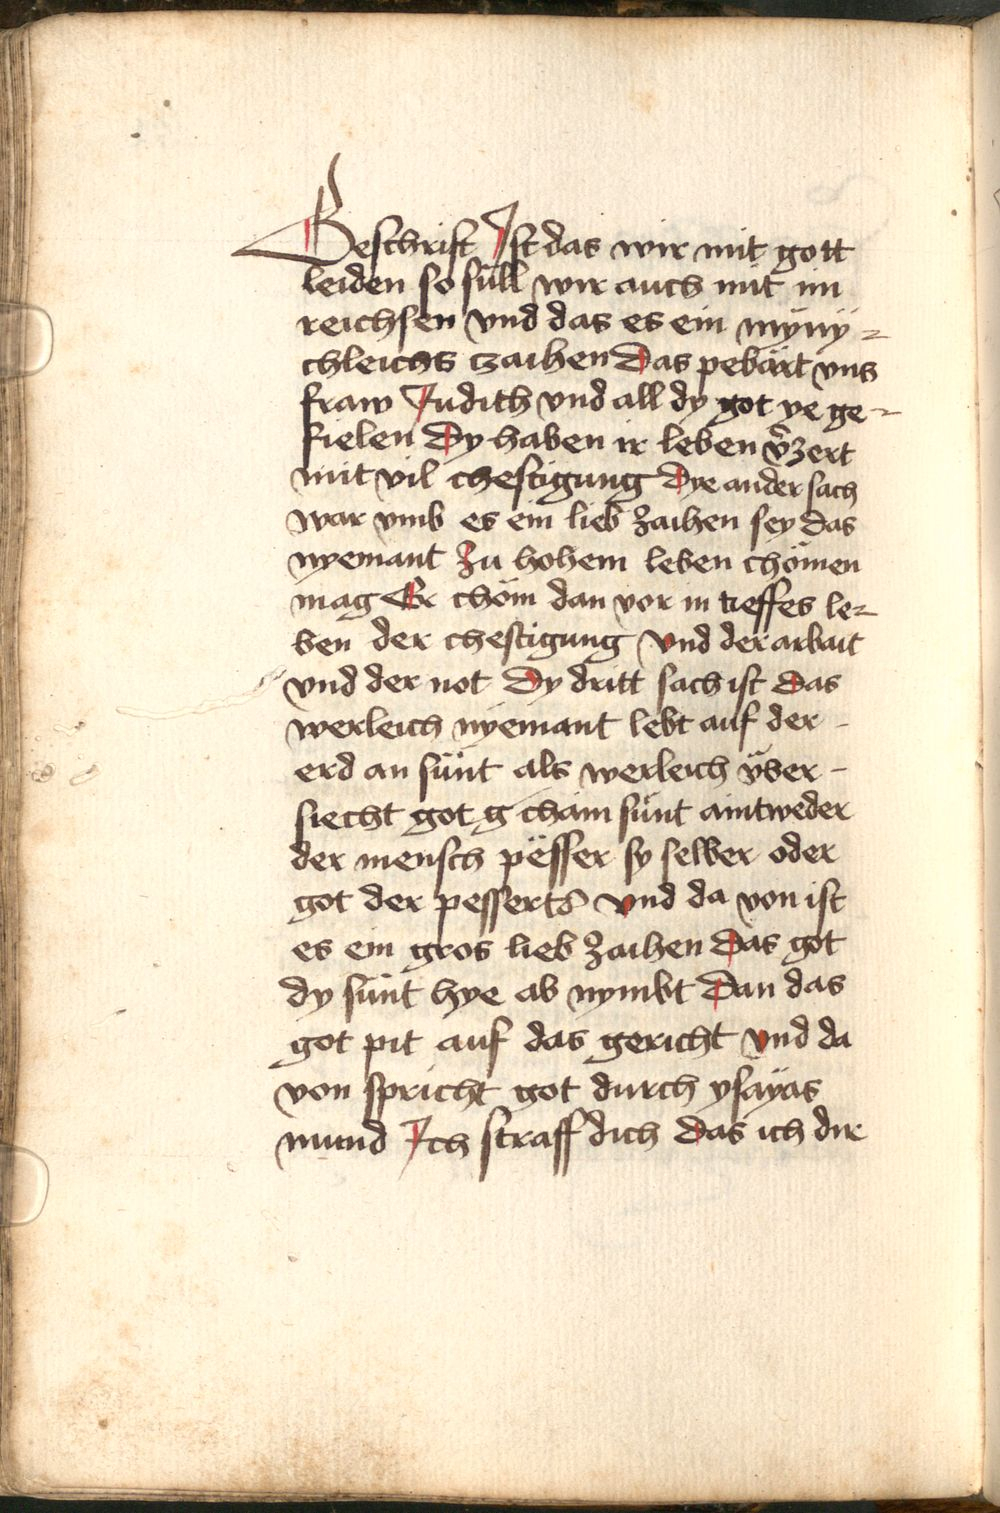 Geschrift Ist das wir mit gott
leiden so süll wir auch mit im
reichsen vnd das es ein mÿnÿ=
chleichs czaihen Das pebärt vns
fraw Judith vnd all dy got ye ge=
fielen Dy haben ir leben v̂zert
mit vil chestigung Dye ander sach
war vmb es ein lieb zaihen sey das
nyemant zu hohem leben chömen
mag Er chöm dan vor in tieffes le=
ben der chestigung vnd der arbait
vnd der not Dy dritt sach ist Das
werleich nÿemant lebt auf der -
erd an sünt als werleich v̈ber -
siecht got cham sünt aintweder
der mensch pësser sy selber oder
got der pesserts vnd da von ist
es ein gros lieb zaihen Das got
dy sünt hye ab nymbt Dan das
got pit auf das gericht vnd da
von spricht got durch ysäyas
mund Ich straff dich Das ich dir